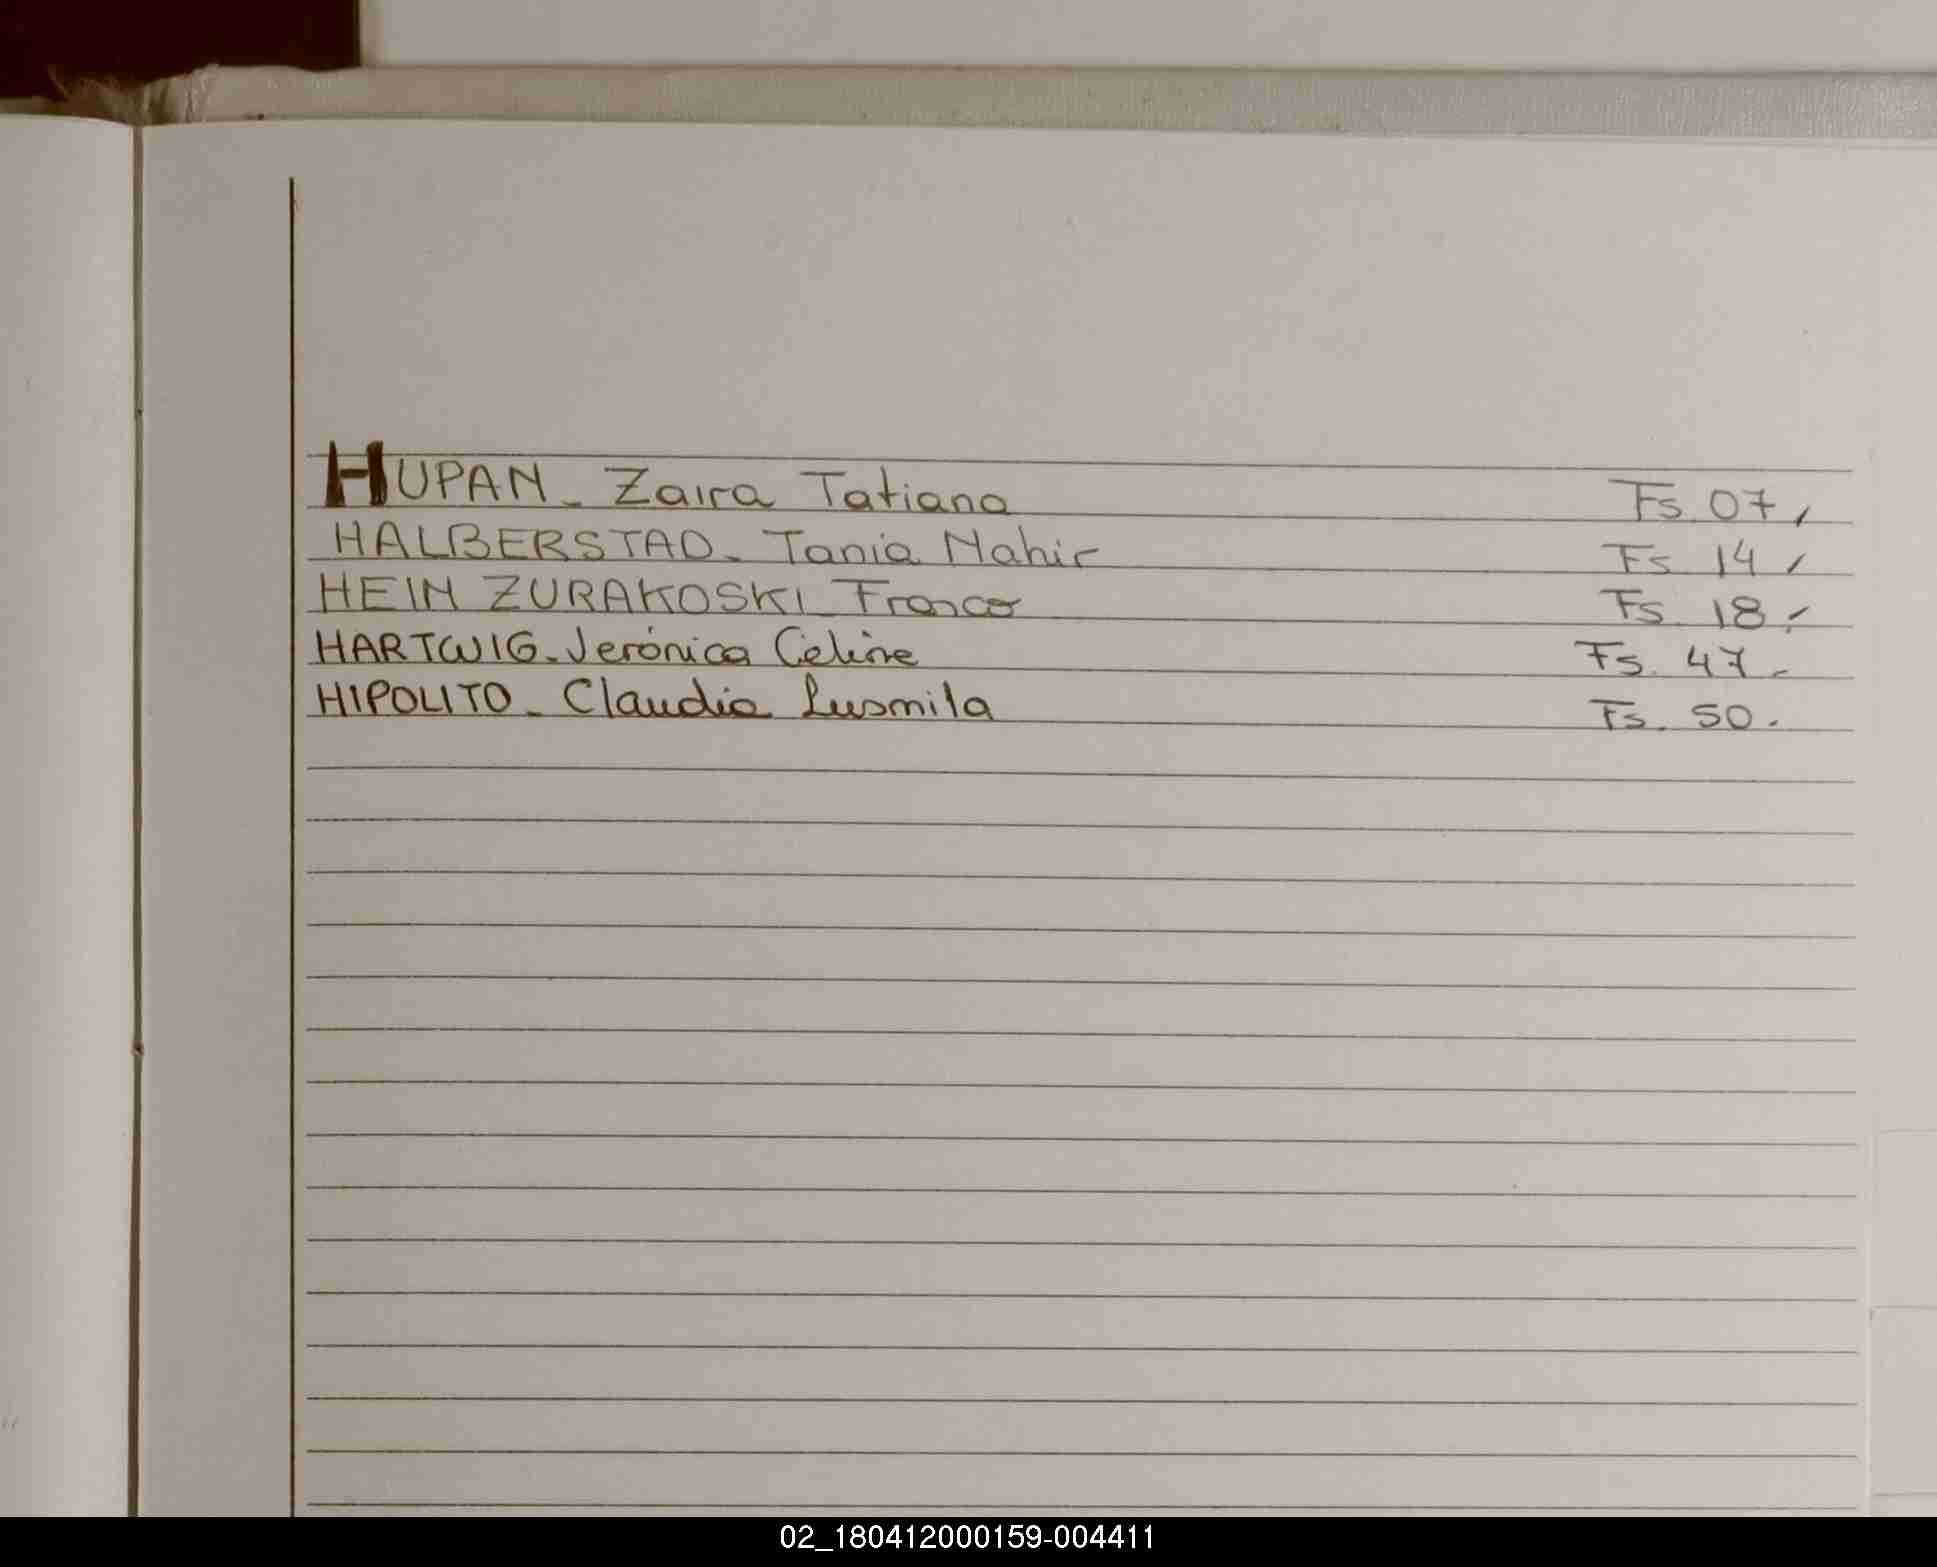 HUPAN - Zaira Tatiana Fs. 07,
HALBERSTAD - Tania Nahir Fs. 14,
HEIN ZURAKOSKI Franco Fs. 18.
HARTWIG - Jerónica Celine Fs. 47.-
HIPOLITO - Claudia Lusmila Fs. 50.
02_180412000159-004411